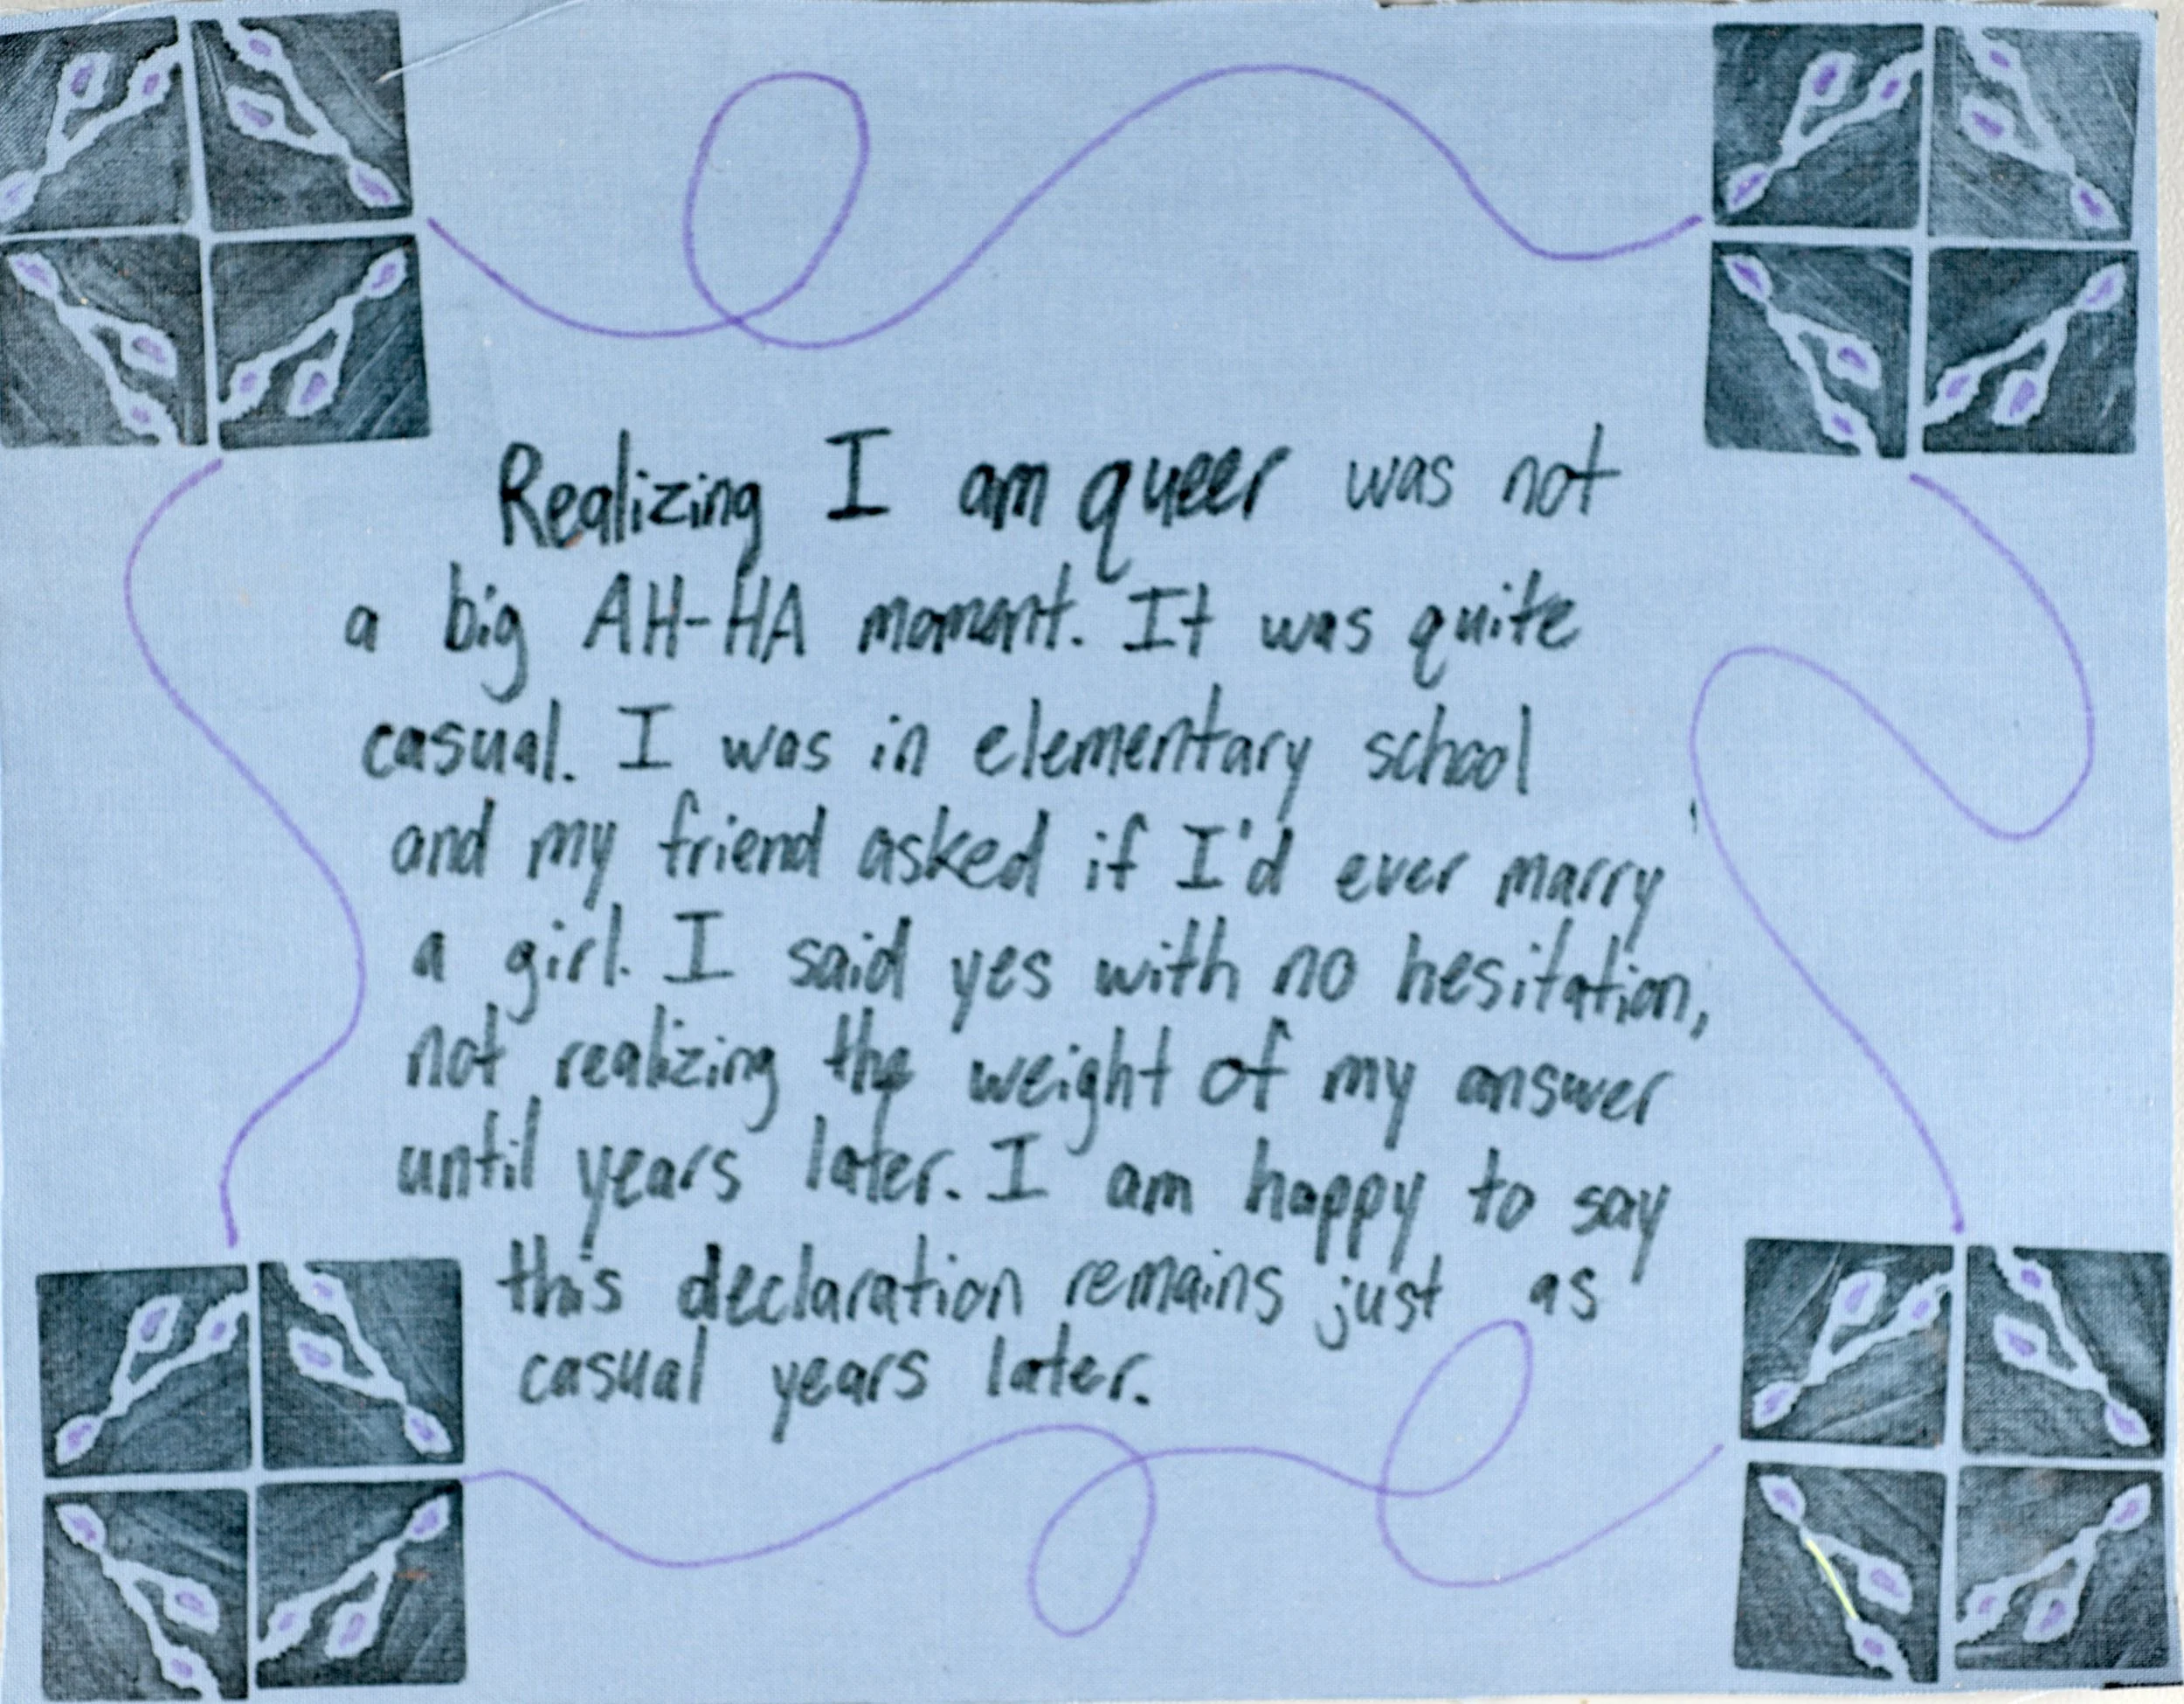 Realizing I am queer was not
a big AH-HA moment. It was quite
casual. I was in elementary school
and my friend asked if I'd ever marry
a girl. I said yes with no hesitation,
not realizing the weight of my answer
until years later. I am happy to say
this declaration remains just as
casual years later.